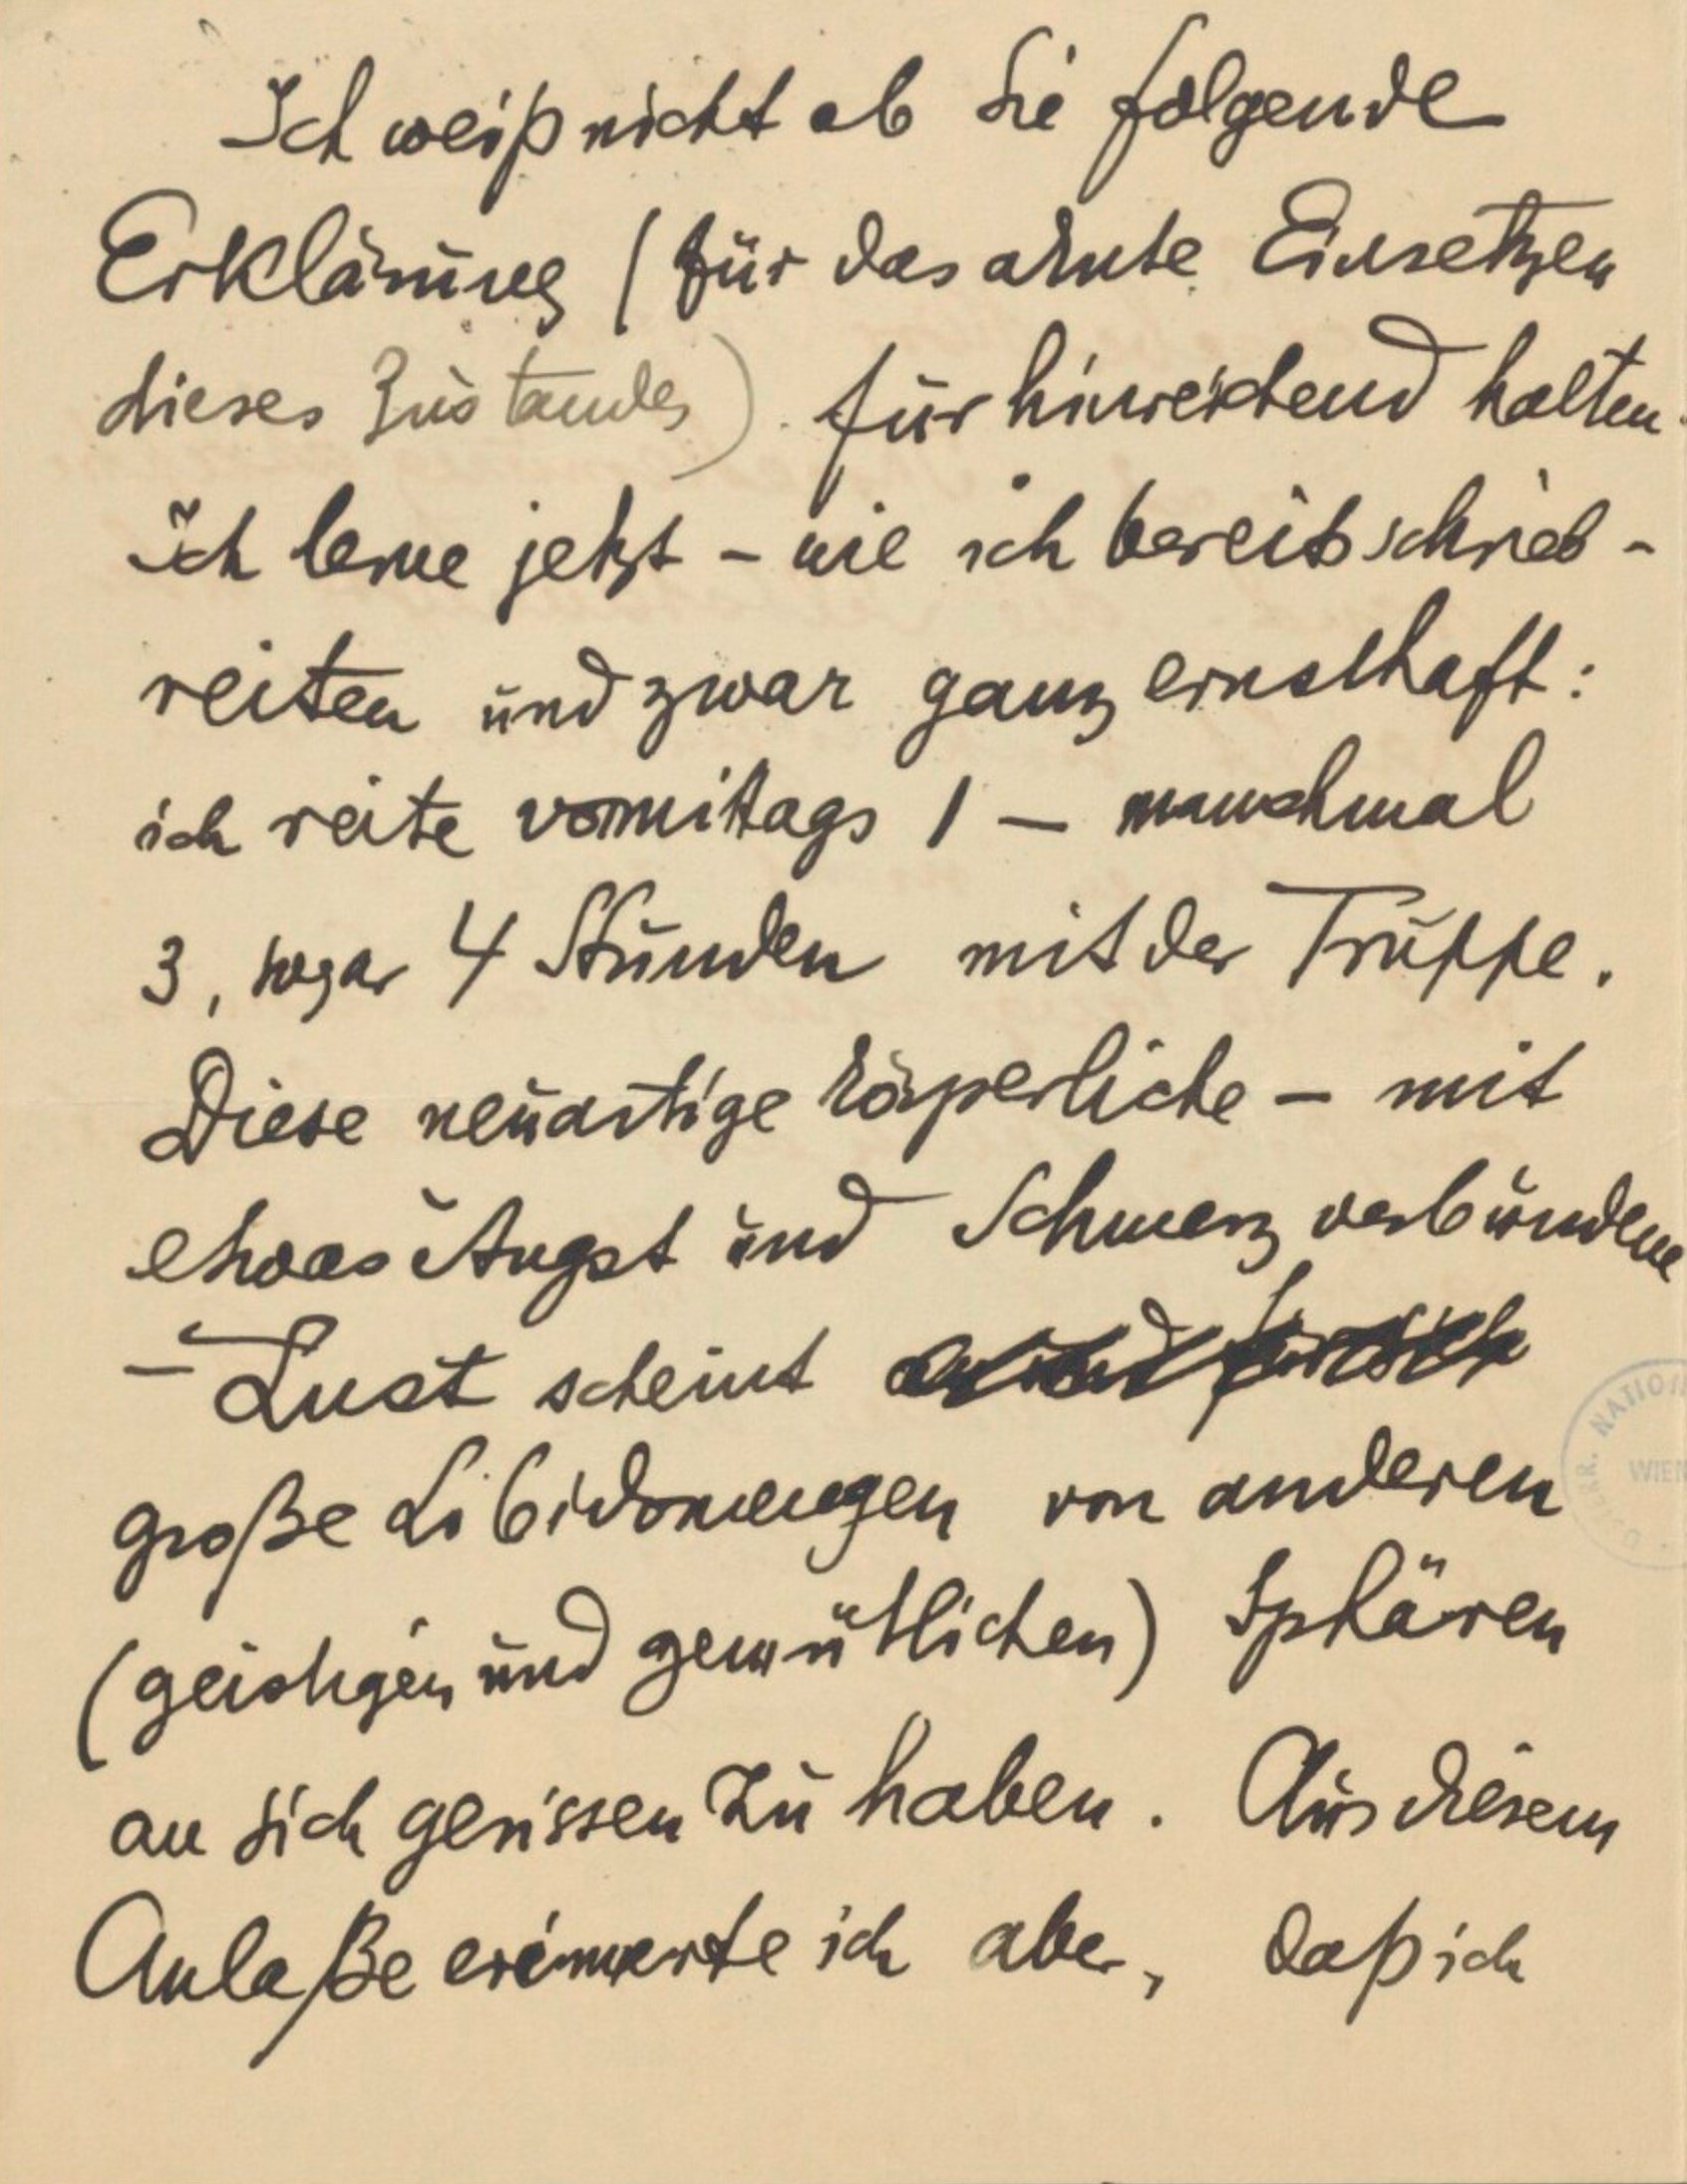 Ich weiß nicht ob Sie folgende
Erklärung (für das akute Einsetzen
dieses Zustandes) für hinreichend halten.
Ich lerne jetzt – wie ich bereits schrieb –
reiten und zwar ganz ernsthaft:
ich reite vormittags 1 – manchmal
3, sogar 4 Stunden mit der Truppe.
Diese neuartige körperliche – mit
etwas Angst und Schmerz verbundene
– Lust scheint
große Libidomengen von anderen
(geistigen und gemütlichen) Sphären
an sich gerissen zu haben. Aus diesem
Anlaße erinnerte ich aber, daß ich
NATION
WIEN